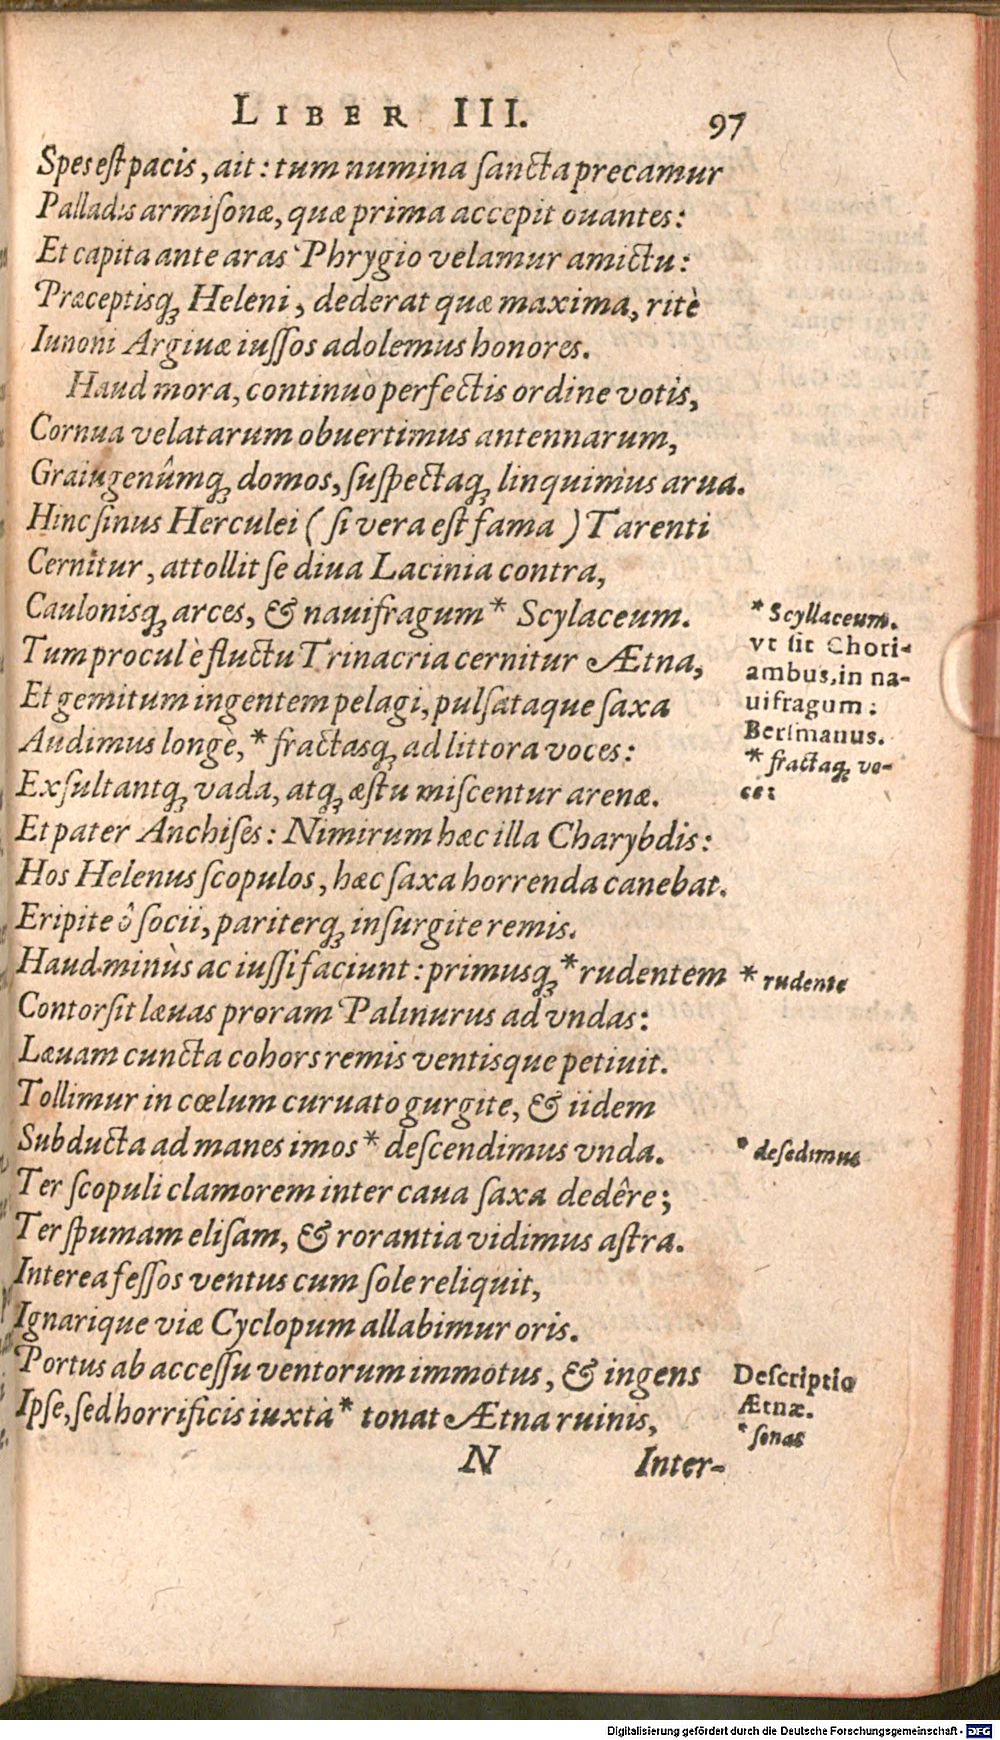 LIBER III. 97
Spes est pacis, ait: tum numina sancta precamur
Palladis armisonæ, quæ prima accepit ouantes:
Et capita ante aras Phrygio velamur amictu:
Præceptisq; Heleni, dederat quæ maxima, ritè
Iunoni Argiuæ iussos adolemus honores.
Haud mora, continuò perfectis ordine votis,
Cornua velatarum obuertimus antennarum,
Graiugenûmq; domos, suspectaq; linquimus arua.
Hinc sinus Herculei (si vera est fama) Tarenti
Cernitur, attollit se diua Lacinia contra,
Caulonisq; arces, & nauifragum* Scylaceum.
Tum procul è fluctu Trinacria cernitur Ætna,
Et gemitum ingentem pelagi, pulsataque saxa
Audimus longè, *fractasq; ad littora voces:
Exsultantq; vada, atq; æstu miscentur arenæ.
Et pater Anchises: Nimirum hæc illa Charybdis:
Hos Helenus scopulos, hæc saxa horrenda canebat.
Eripite ô socii, pariterq; insurgite remis.
Haud minùs ac iussi faciunt: primusq; *rudentem
Contorsit læuas proram Palinurus ad vndas:
Læuam cuncta cohors remis ventisque petiuit.
Tollimur in cœlum curuato gurgite, & iidem
Subducta ad manes imos* descendimus vnda.
Ter scopuli clamorem inter caua saxa dedêre;
Ter spumam elisam, & rorantia vidimus astra.
Interea fessos ventus cum sole reliquit,
Ignarique viæ Cyclopum allabimur oris.
Portus ab accessu ventorum immotus, & ingens
Ipse, sed horrificis iuxtà* tonat Ætna ruinis,
N Inter-
* Scyllaceum.
vt sit Chori-
ambus, in na-
uifragum:
Bersmanus.
* fractaq; vo-
ces
* rudente
* desedimus
Descriptio
Ætnæ.
* sonat
Digitalisierung gefördert durch die Deutsche Forschungsgemeinschaft - DFG